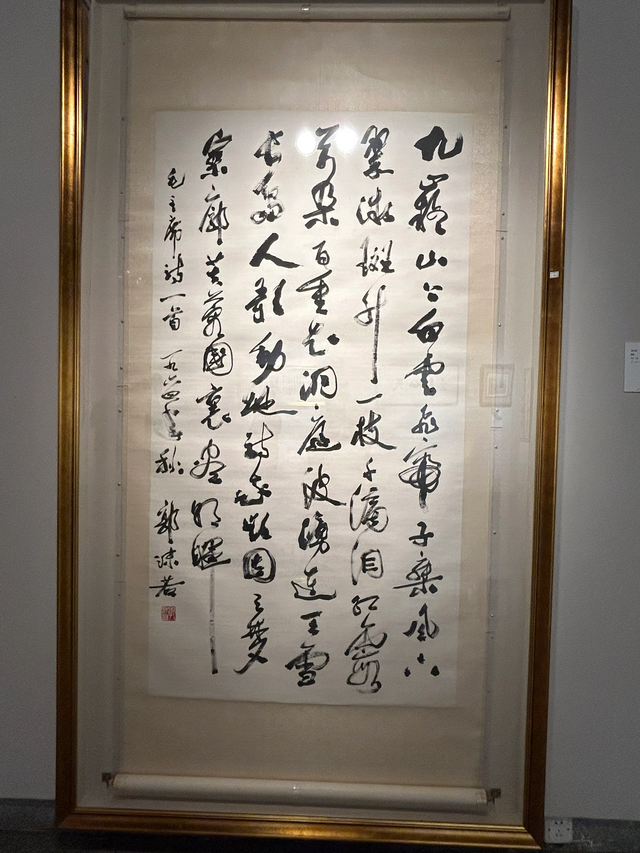 九嶷山上白雲飛帝子乘風下
翠微斑竹一枝千滴泪紅霞
萬朵百重衣洞庭波湧連天雪
長島人歌動地詩我欲因之夢
寥廓芙蓉國裏盡朝暉
毛主席詩一首 一九六四年秋 郭沫若